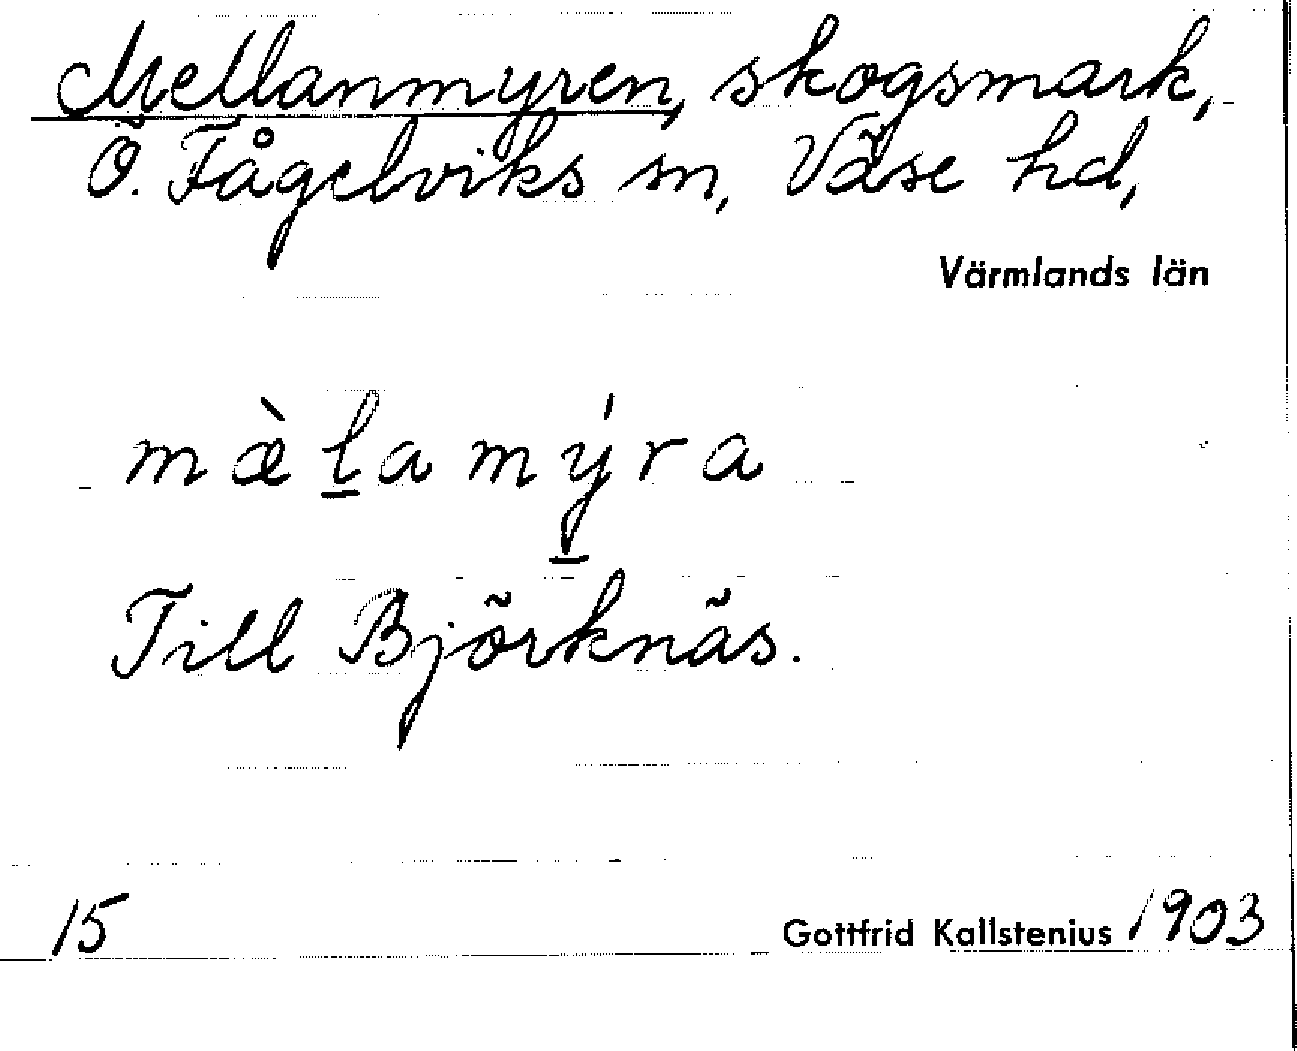 Mellanmyren, skogsmark,
Ö. Fågelviks sn, Väse hd,
Värmlands län
mæ̀l̲amý̲ra
Till Björknäs.
15
Gottfrid Kallstenius 1903